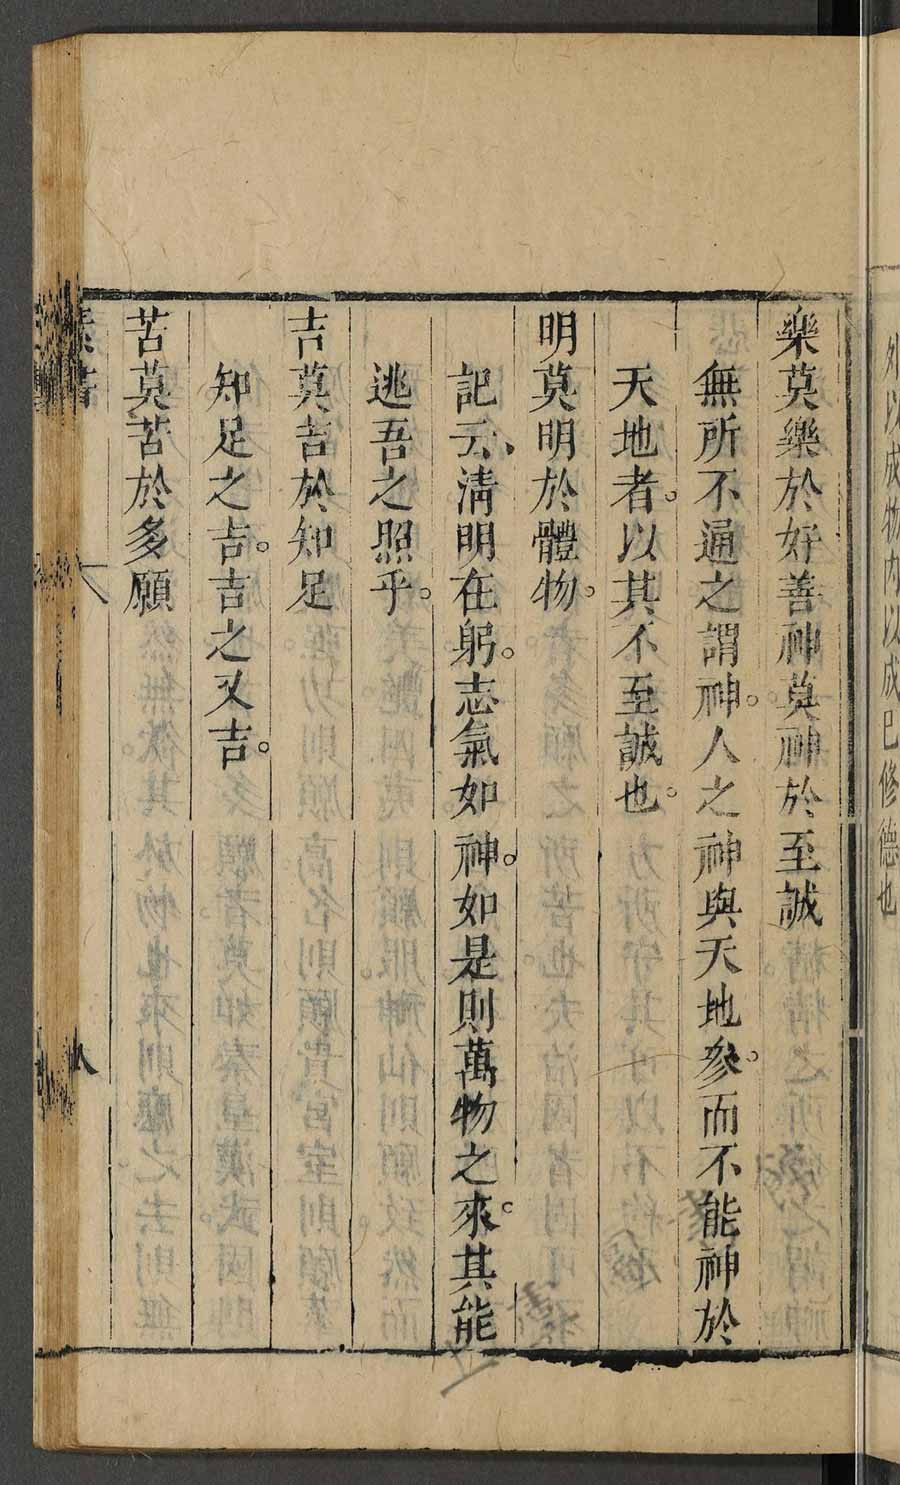 外以成物内以成已修德也
樂莫樂於好善神莫神於至誠
無所不通之謂神。人之神與天地參。而不能神於
天地者。以其不至誠也。
明莫明於體物。
記云、淸明在躬。志氣如神。如是則萬物之來。其能
逃吾之照乎。
吉莫吉於知足
知足之吉。吉之又吉。
苦莫苦於多願
素書
六
八